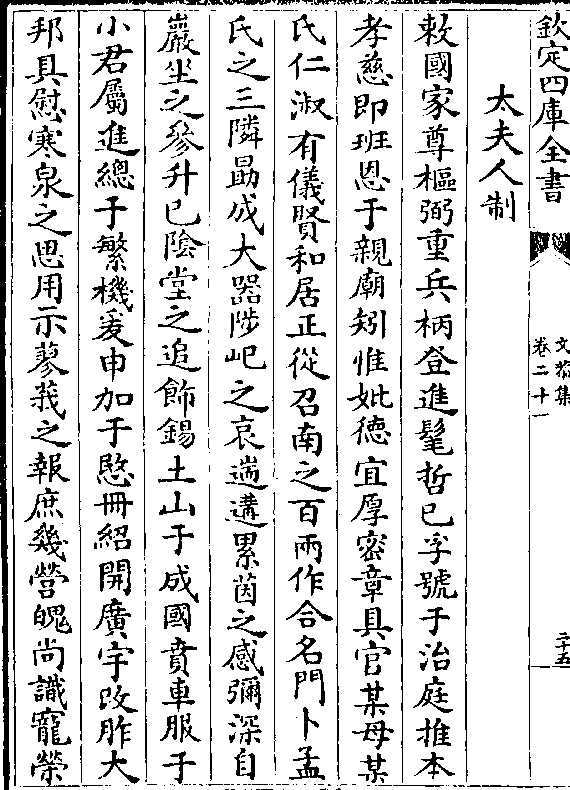 欽定四庫全書
文恭集
卷二十一
二十五
太夫人制
敕國家尊樞弼重兵柄登進髦哲已孚號于治庭推本
孝慈即班恩于親廟矧惟妣德宜厚密章具官某母某
氏仁淑有儀賢和居正從召南之百兩作合名門卜孟
氏之三隣勗成大器陟屺之哀遄遘累茵之感彌深自
巖坐之參升已陰堂之追飾錫土山于成國賁車服于
小君屬進總于繁機爰申加于愍冊紹開廣宇改胙大
邦具慰寒泉之思用示蓼莪之報庶幾營魄尚識寵榮